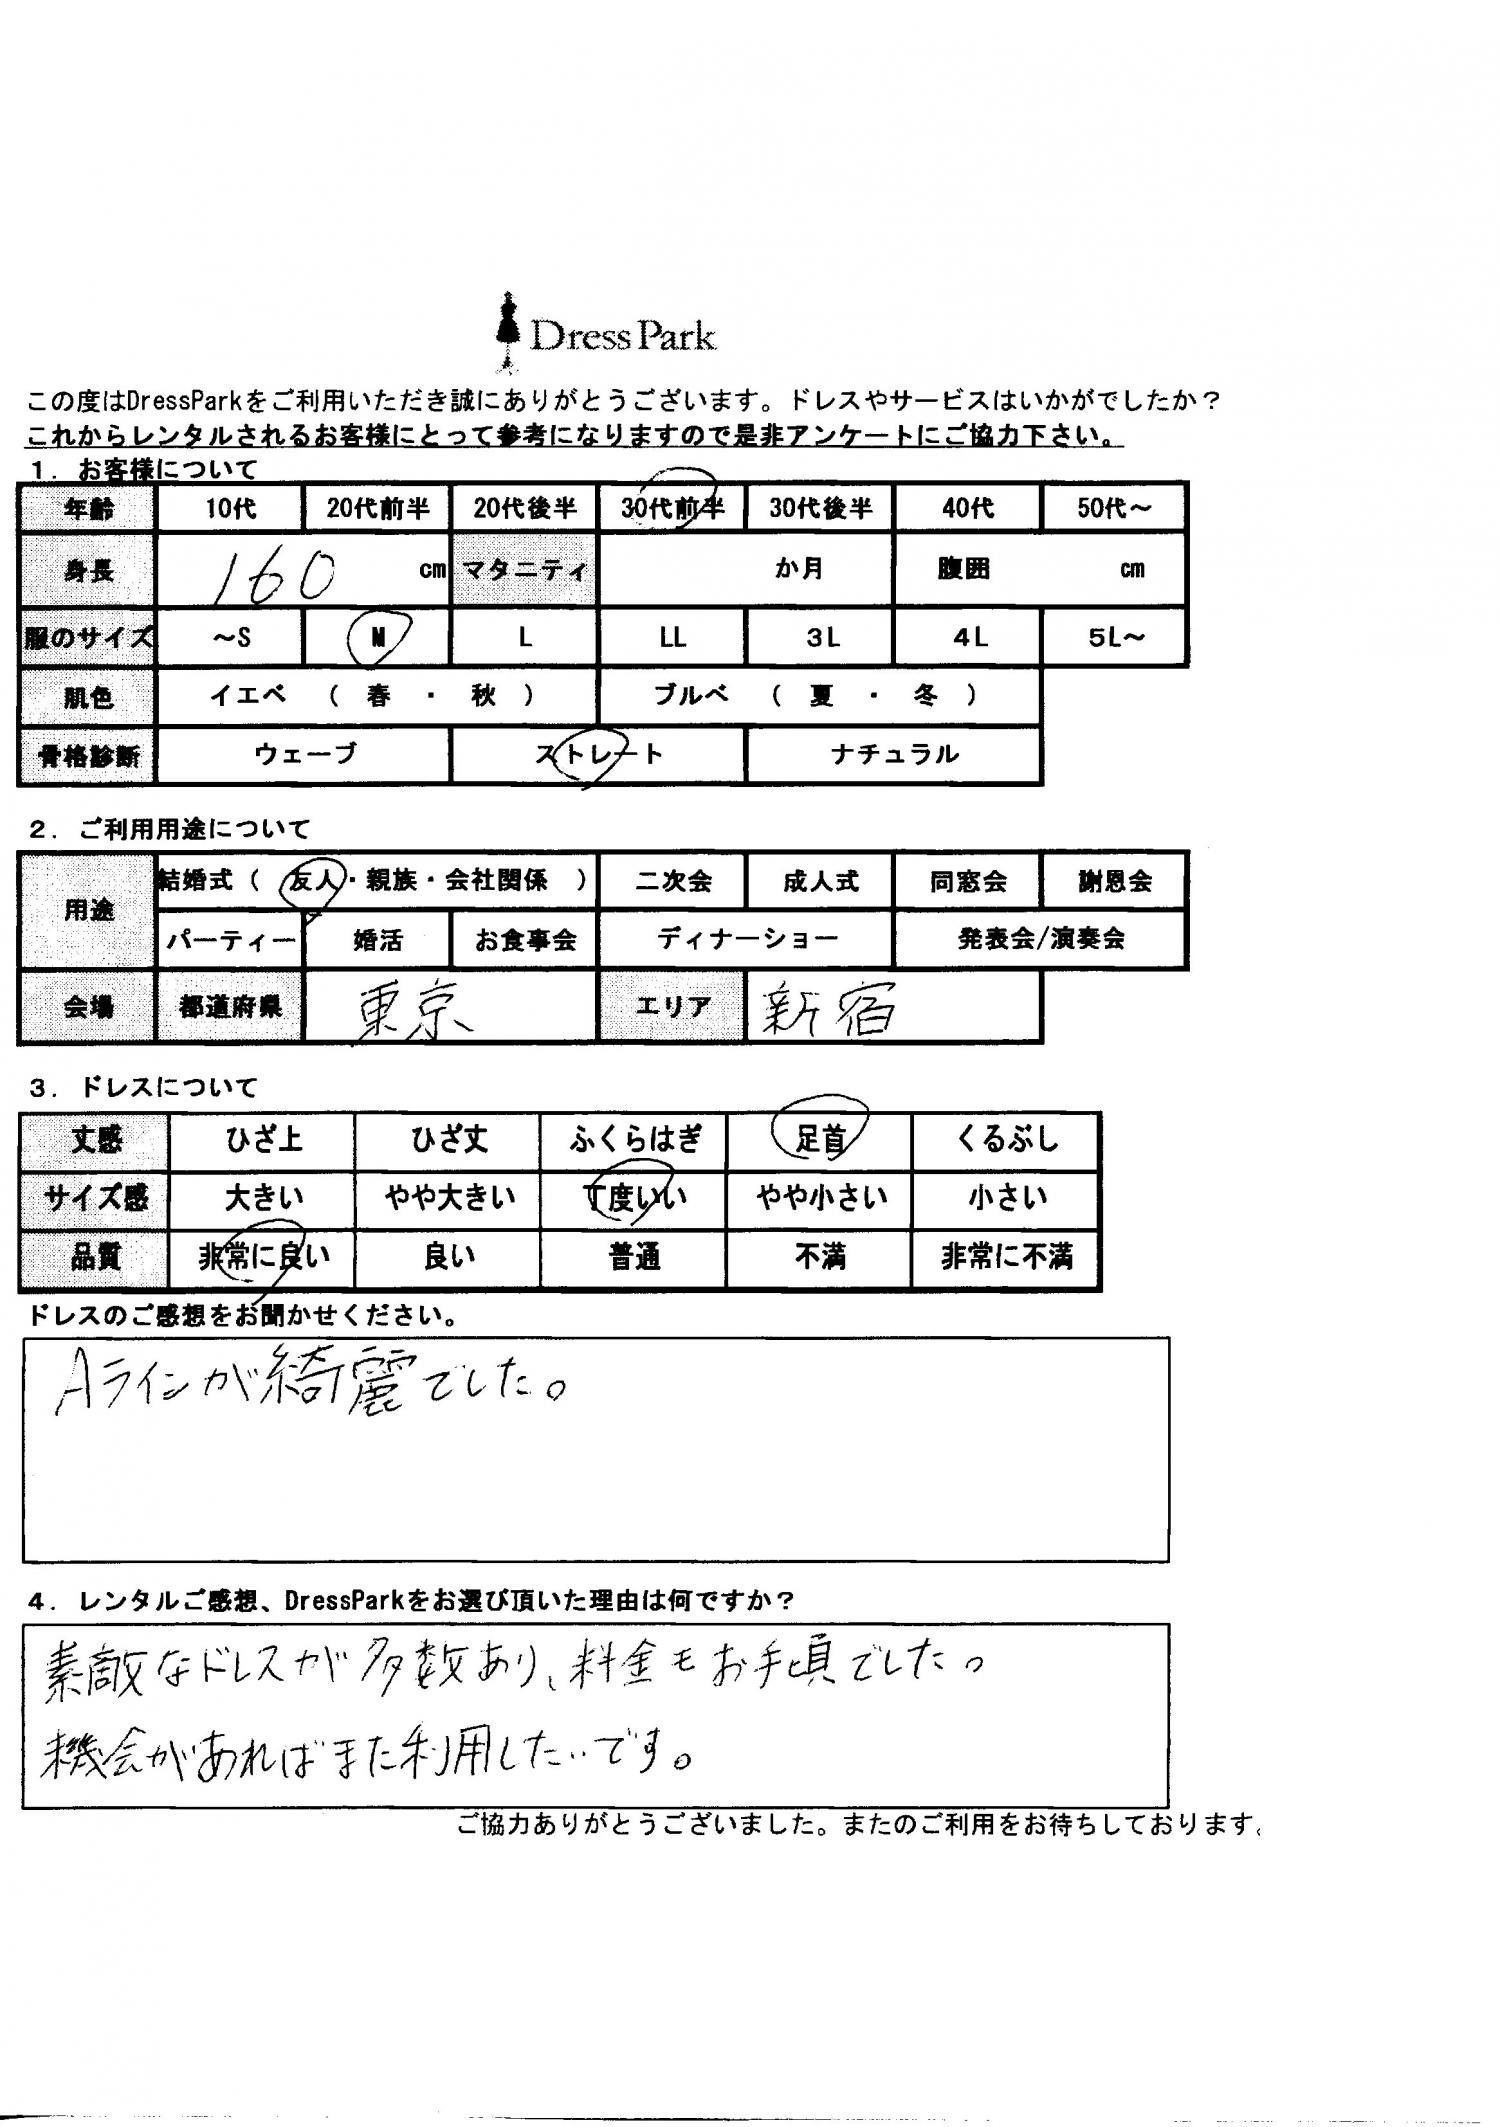 DressPark
この度はDressParkをご利用いただき誠にありがとうございます。ドレスやサービスはいかがでしたか？
これからレンタルされるお客様にとって参考になりますので是非アンケートにご協力下さい。
１．お客様について
年齢 10代 20代前半 20代後半 30代前半 30代後半 40代 50代～
身長 160 cm マタニティ か月 腹囲 cm
服のサイズ ～S M L LL 3L 4L 5L～
肌色 イエベ （ 春 ・ 秋 ） ブルベ （ 夏 ・ 冬 ）
骨格診断 ウェーブ ストレート ナチュラル
２．ご利用用途について
用途 結婚式（ 友人・親族・会社関係 ） 二次会 成人式 同窓会 謝恩会
パーティー 婚活 お食事会 ディナーショー 発表会/演奏会
会場 都道府県 東京 エリア 新宿
３．ドレスについて
丈感 ひざ上 ひざ丈 ふくらはぎ 足首 くるぶし
サイズ感 大きい やや大きい 丁度いい やや小さい 小さい
品質 非常に良い 良い 普通 不満 非常に不満
ドレスのご感想をお聞かせください。
Aラインが綺麗でした。
４．レンタルご感想、DressParkをお選び頂いた理由は何ですか？
素敵なドレスが多数あり、料金もお手頃でした。
機会があればまた利用したいです。
ご協力ありがとうございました。またのご利用をお待ちしております。